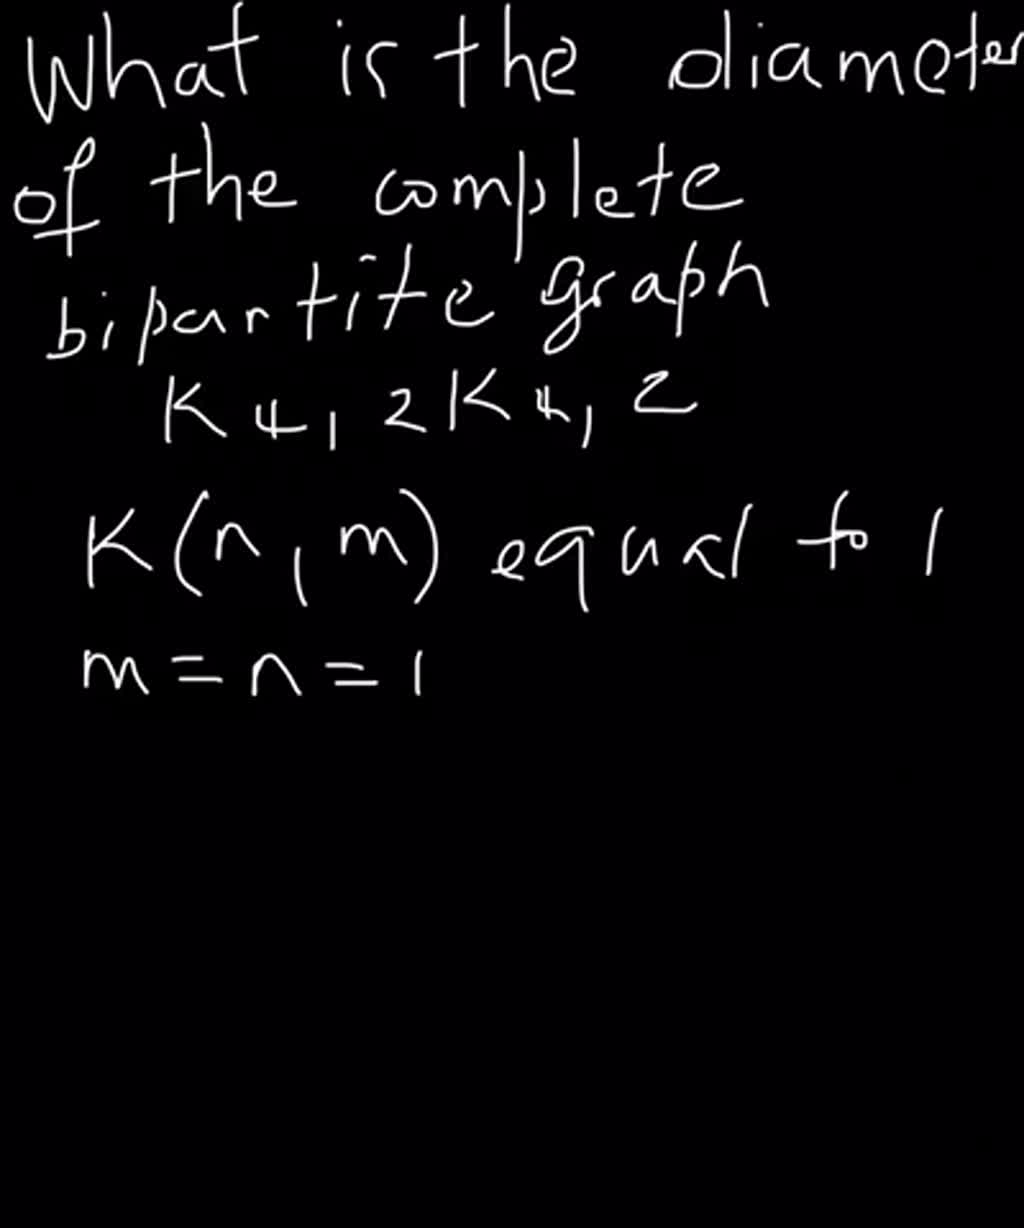 What is the diameter
of the complete
bipartite graph
K 4, 2 K 4, 2
K(n, m) equal to 1
m = n = 1